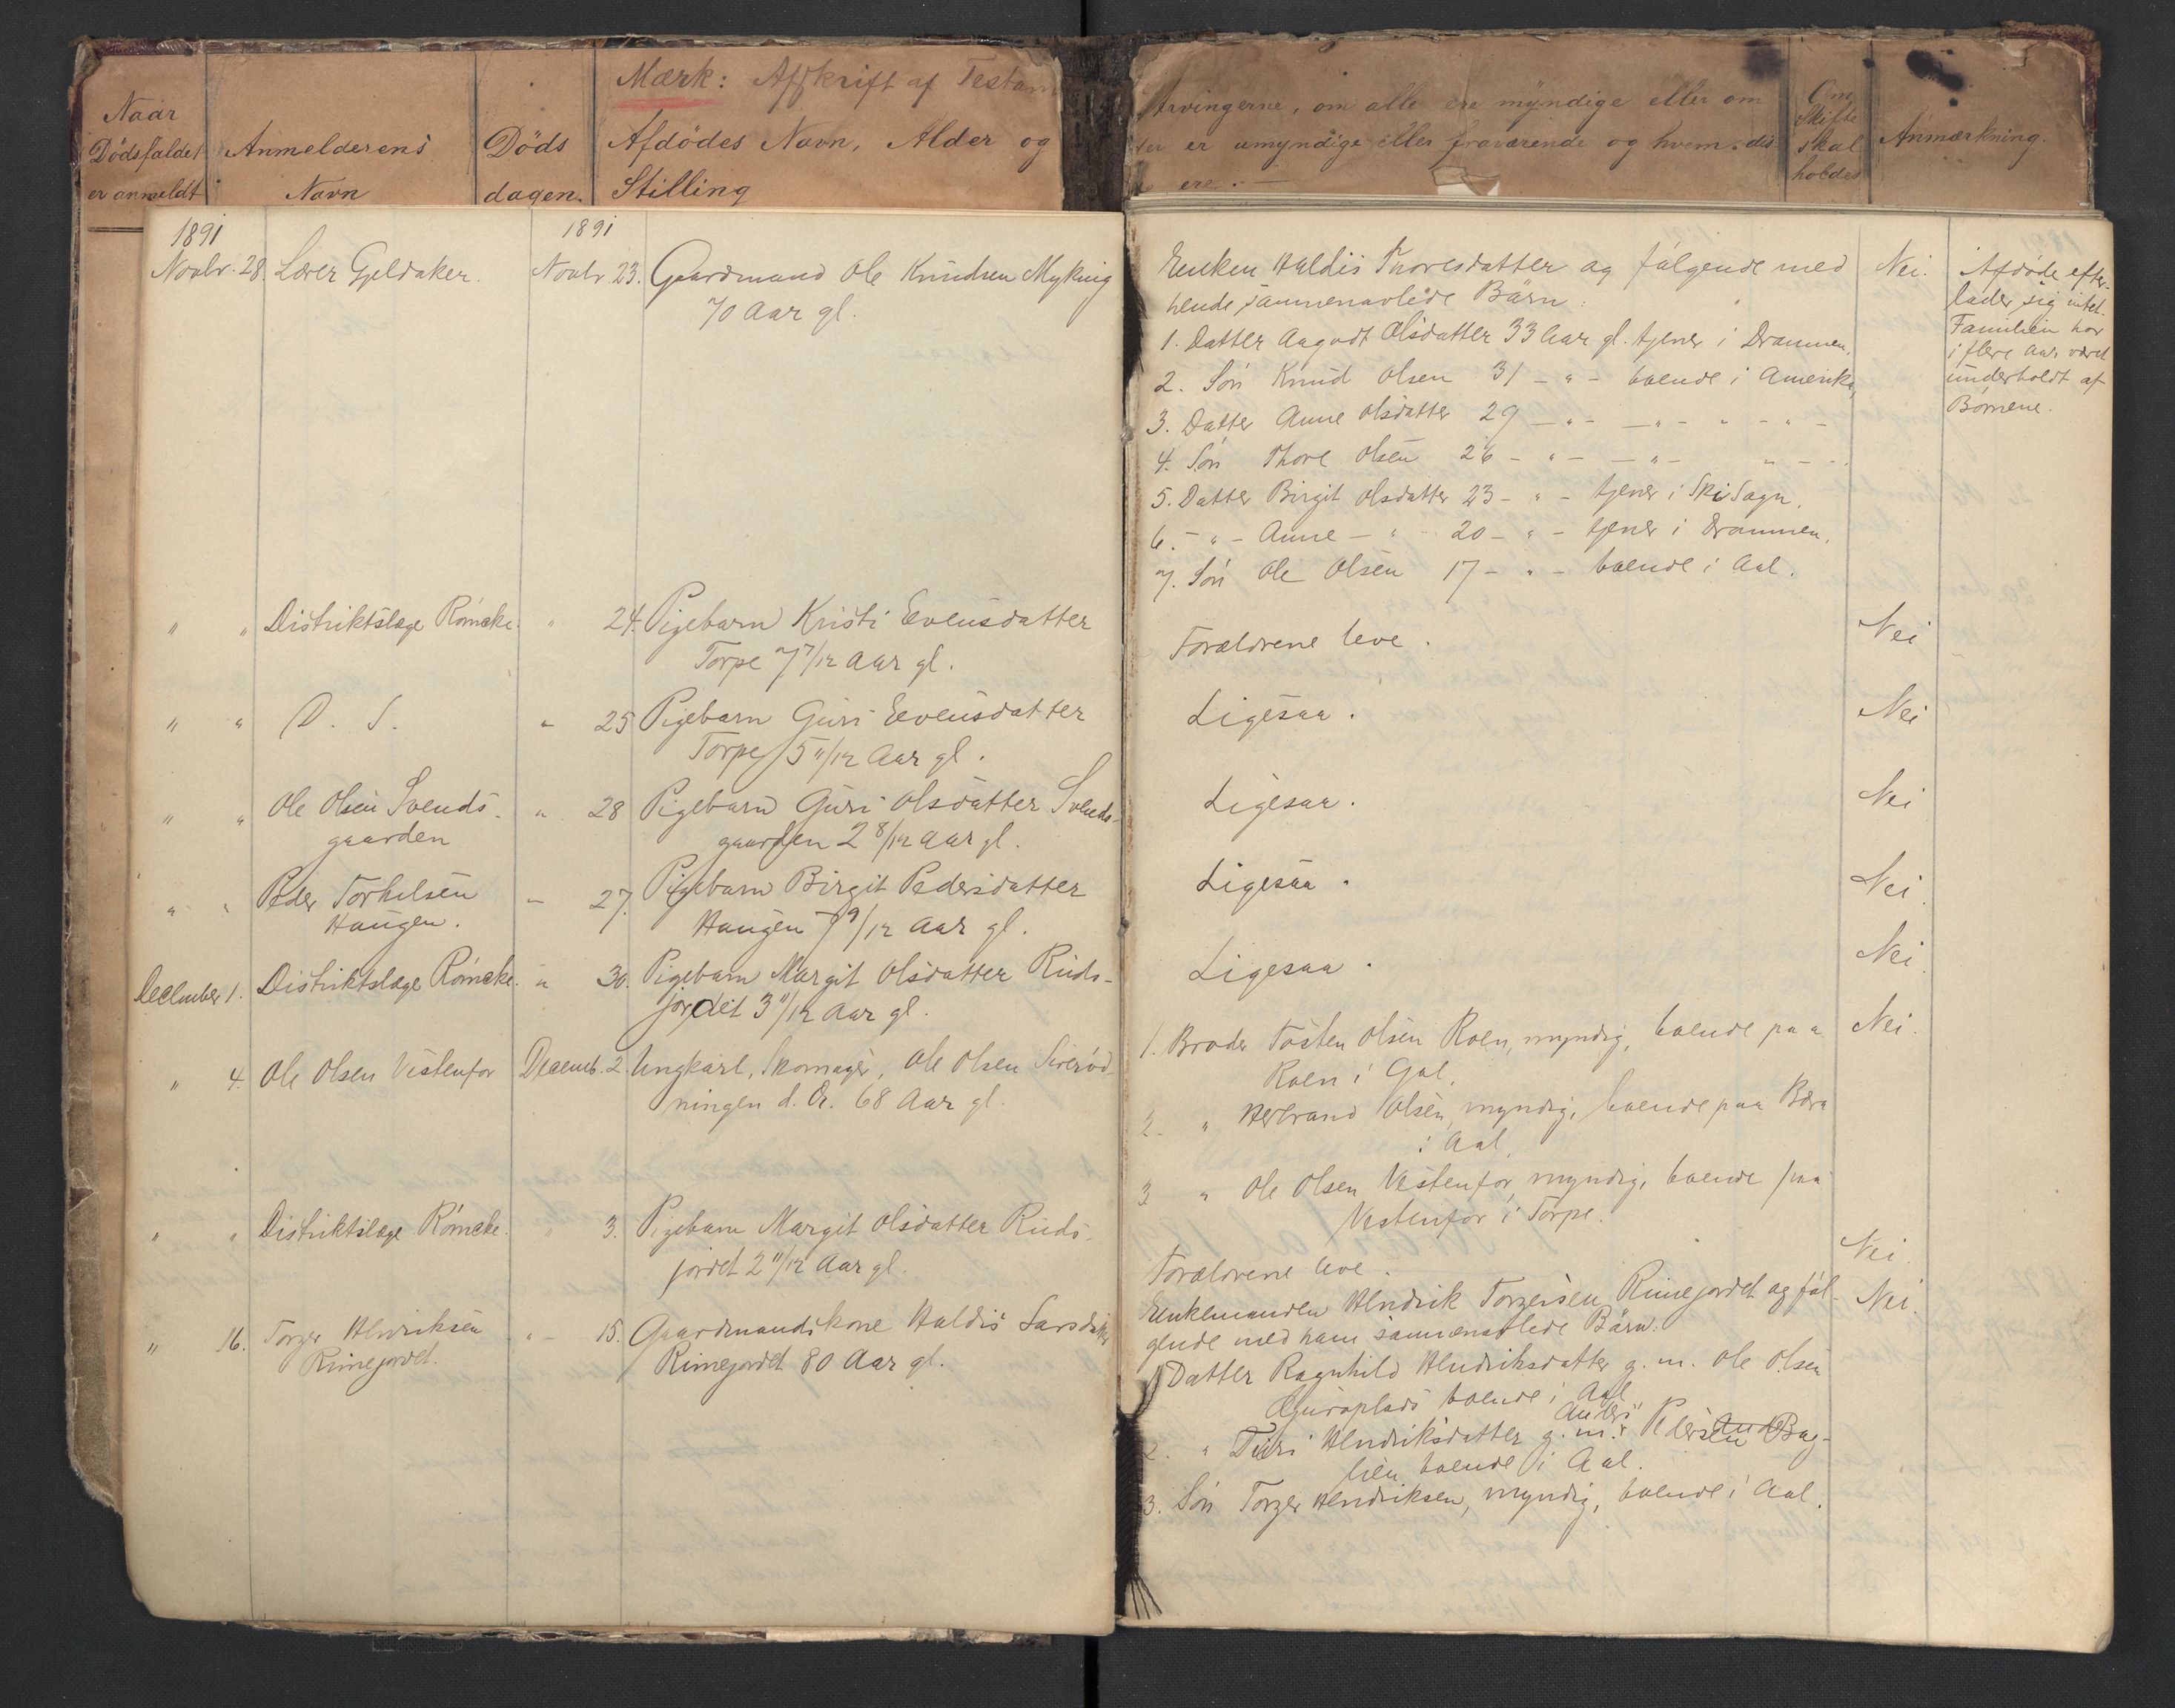 Mærk: Afskrift af Testam
Naar
Dödsfaldet
er anmeldt
Anmelderens
Navn
Döds
dagen.
Afdödes Navn, Alder og
Stilling
Arvingerne, om alle ere myndige eller om
er umyndige eller fraværende og hvem de
ere.
Om
Skifte
skal
holdes
Anmærkning.
1891
1891
Novbr. 28. Lærer Gjeldaker. Novbr. 23. Gaardmand Ole Knudsen Myking
70 Aar gl.
" " Distriktslæge Römcke. " 24. Pigebarn Kristi Evensdatter
Torpe 7 7/12 Aar gl.
" " D. S. " 25 Pigebarn Guri Evensdatter
Torpe 5 11/12 Aar gl.
" " Ole Olsen Svends- " 28 Pigebarn Guri Olsdatter Svends-
gaarden gaarden 2 8/12 Aar gl.
" " Peder Torkelsen – 27. Pigebarn Birgit Pedersdatter
Haugen. Haugen 7 9/12 Aar gl.
December 1. Distriktslæge Römcke. " 30. Pigebarn Margit Olsdatter Ruds-
jordet 3 11/12 Aar gl.
" 4. Ole Olsen Vestenfor Decemb. 2. Ungkarl, Skomager, Ole Olsen
ningen d. Æ. 68 Aar gl.
" " Distriktslæge Römcke. " 3. Pigebarn Margit Olsdatter Ruds-
jordet 2 11/12 Aar gl.
" 16. Torger Henriksen " – 15. Gaardmandskone Haldis Larsdatter
Rimejordet. Rimejordet 80 Aar gl.
Enken Haldis Thoresdatter og følgende med Nei.
hende sammenavlede Börn:
1. Datter Aagodt Olsdatter 33 Aar gl. tjener i Drammen,
2. Sön Knud Olsen 31 – " – boende i Amerika,
3. Datter Anne Olsdatter 29 – " – – " – " – " –
4. Sön Thore Olsen 26 – " – – " – " – –
5. Datter Birgit Olsdatter 23 – " – tjener i Ski Sogn,
6. – " – Anne – " – 20 – " – tjener i Drammen,
7. Sön Ole Olsen 17 – " – boende i Aal.
Afdøde efter-
lader sig intet.
Familien har
i flere Aar været
underholdt af
Børnene.
Forældrene leve. Nei
Ligesaa. Nei
Ligesaa. Nei
Ligesaa. Nei.
Ligesaa. Nei.
1. Broder Tosten Olsen Roen, myndig, boende paa Nei.
Roen i Gol,
2. " Herbrand Olsen, myndig, boende paa
i Aal,
3 " Ole Olsen Vestenfor, myndig, boende paa
Vestenfor i Torpe.
Forældrene leve. Nei.
Enkemanden Hendrik Torgersen Rimejordet og føl- Nei.
gende med ham sammenavlede Börn:
1 Datter Ragnhild Hendriksdatter g. m. Ole Olsen
boende i Aal
Anders
2. " Turi Hendriksdatter g. m. Pedersen Bag-
lien boende i Aal.
3. Sön Torger Hendriksen, myndig, boende i Aal.